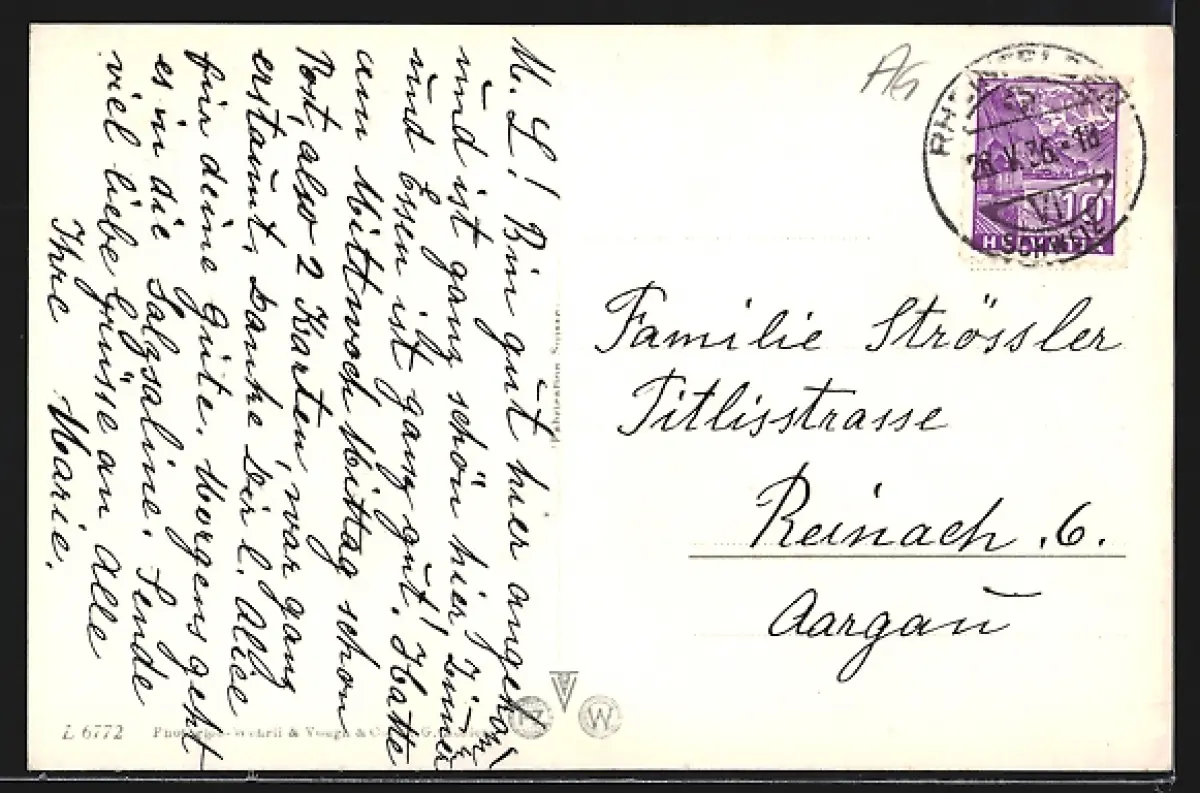 M. L! Bin gut hier angekom̄.
und ist ganz schön hier! Zimmer
und Essen ist ganz gut! Hatte
am Mittwoch Mittag schon
Post, also 2 Karten, war ganz
erstaunt, Danke Dir l. Alice
für deine Güte. Morgens geht
es in die Salzsaline. Sende
viel liebe Grüsse an Alle
Ihre Marie.
AG
RHEINFELDEN
28.V.36.-18
VI
SCHWEIZ
10
HELVETIA
Familie Strössler
Titlisstrasse
Reinach .6.
Aargau
L 6772 Photoglob-Wehrli & Vouga & Co. A.G. Zürich
Fabrication Suisse
PZ
W